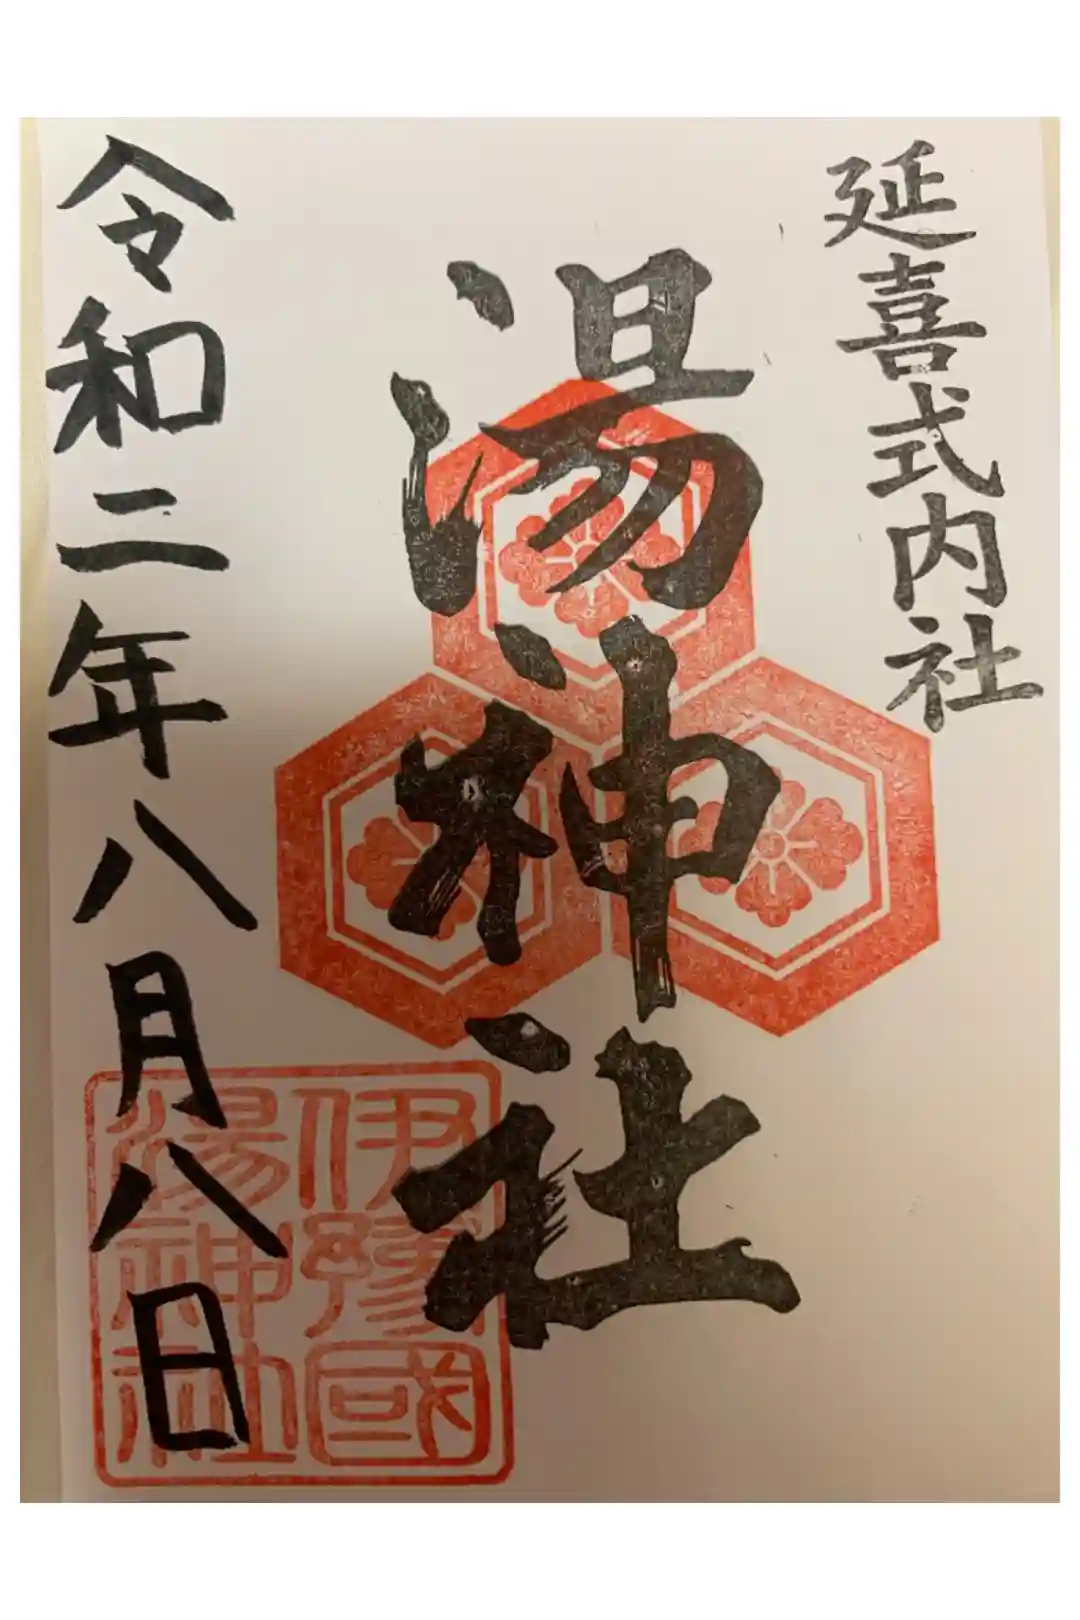 延喜式内社
湯神社
令和二年八月八日
伊豫國
湯神社